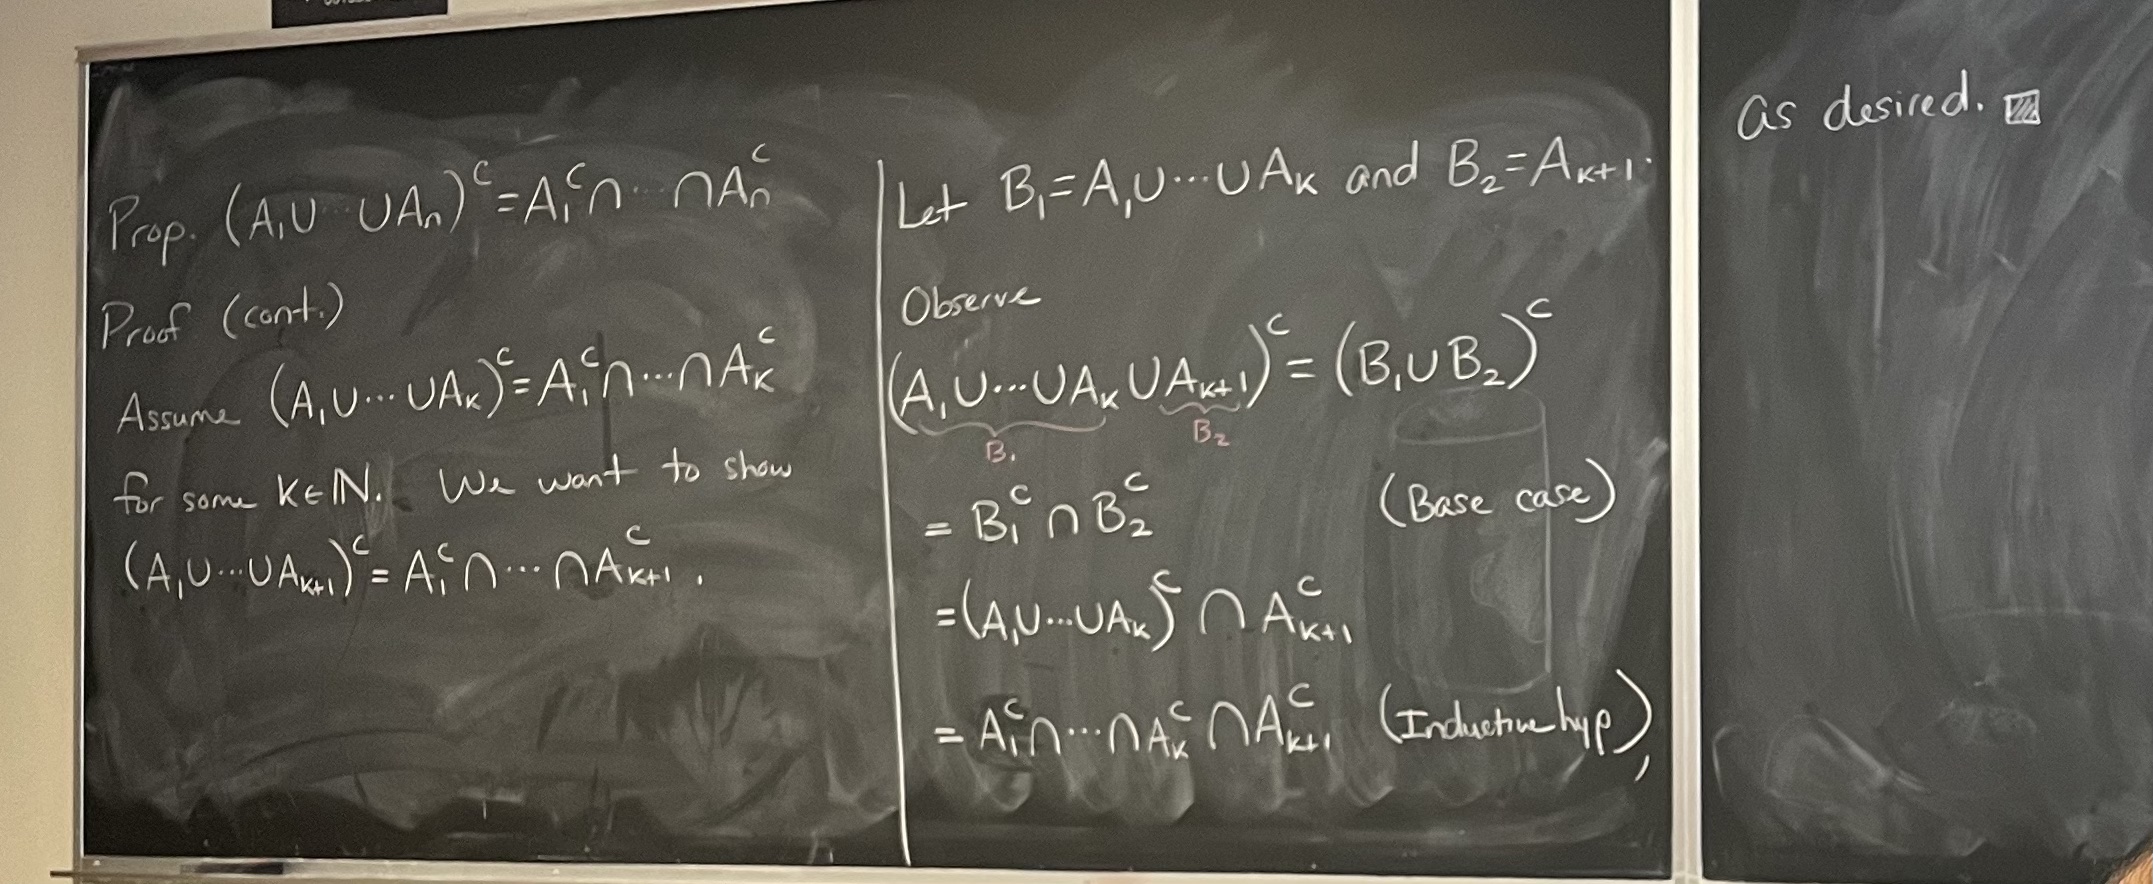 Prop. (A₁∪···∪Aₙ)ᶜ=A₁ᶜ∩···∩Aₙᶜ
Proof (cont.)
Assume (A₁∪···∪Aₖ)ᶜ=A₁ᶜ∩···∩Aₖᶜ
for some K∈ℕ. We want to show
(A₁∪···∪Aₖ₊₁)ᶜ=A₁ᶜ∩···∩Aₖ₊₁ᶜ.
Let B₁=A₁∪···∪Aₖ and B₂=Aₖ₊₁.
Observe
(A₁∪···∪Aₖ∪Aₖ₊₁)ᶜ=(B₁∪B₂)ᶜ
B₁ B₂
=B₁ᶜ∩B₂ᶜ (Base case)
=(A₁∪···∪Aₖ)ᶜ∩Aₖ₊₁ᶜ
=A₁ᶜ∩···∩Aₖᶜ∩Aₖ₊₁ᶜ (Inductive hyp),
as desired.